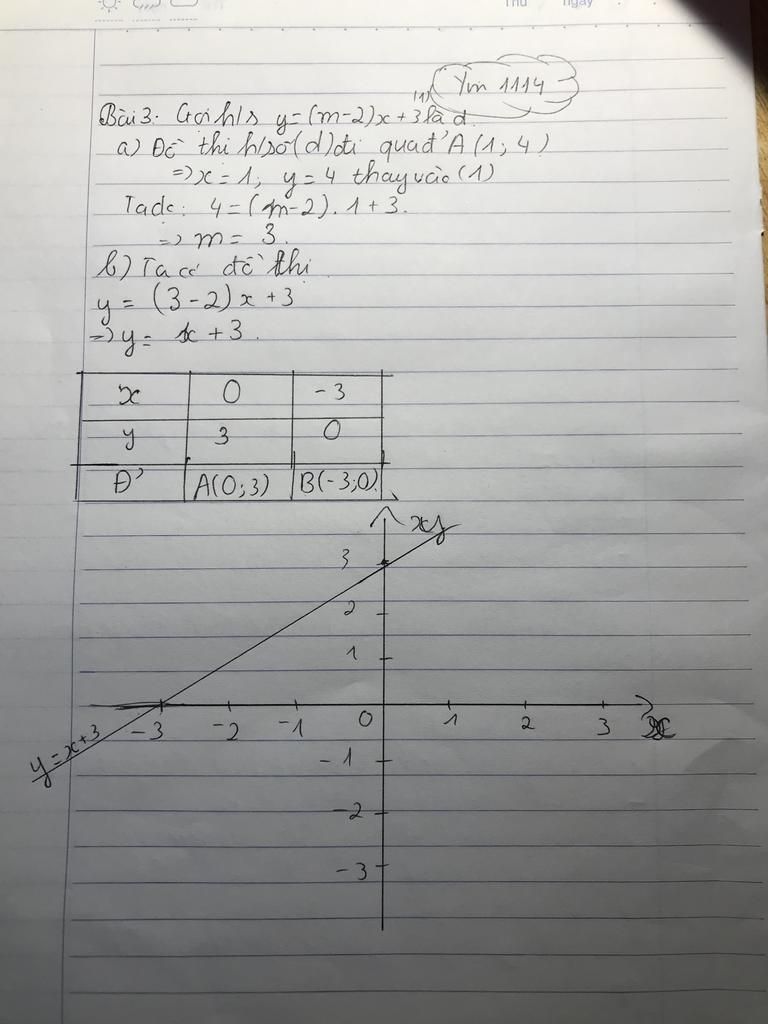 Thứ ngày
Ym 1114
Bài 3. Gọi h/s y=(m-2)x+3 là d (1)
a) Đồ thi h/số (d) đi qua đ' A (1; 4)
=> x=1; y=4 thay vào (1)
Ta dc: 4=(m-2).1+3.
=> m= 3.
b) Ta có đồ thi
y= (3-2)x+3
=> y= x+3.
x 0 -3
y 3 0
Đ' A(0;3) B(-3;0)
y
3
2
1
-3 -2 -1 0 1 2 3 x
y=x+3
-1
-2
-3